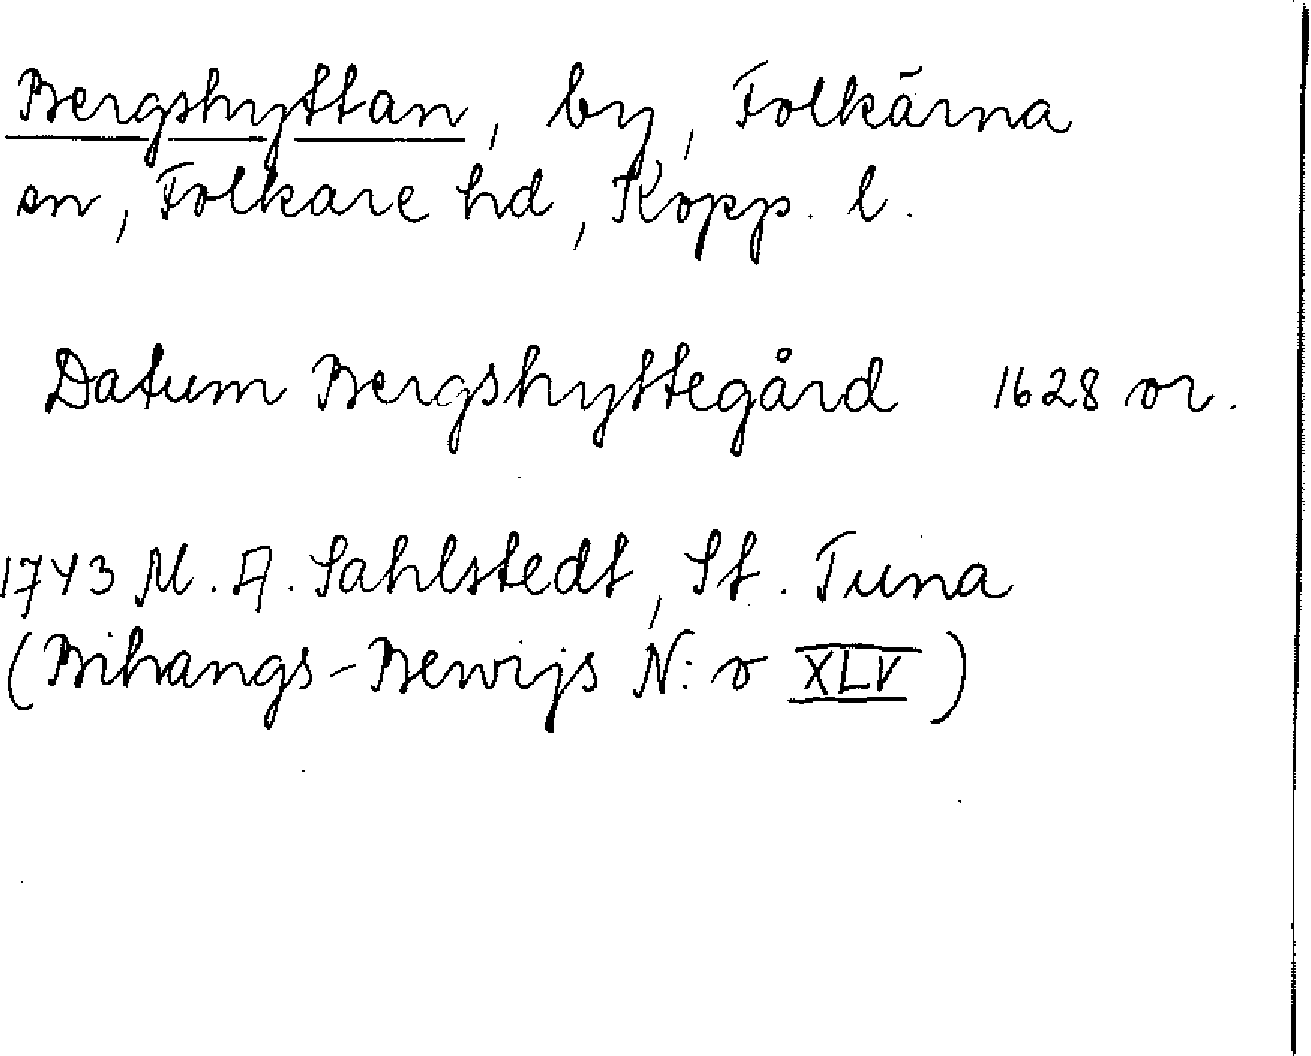 Bergshyttan, by, Folkärna
sn, Folkare hd, Kopp. l.
Datum Bergshyttegård 1628 or.
1743 M. A. Sahlstedt, St. Tuna
(Bihangs-Bewijs N:o XLV)